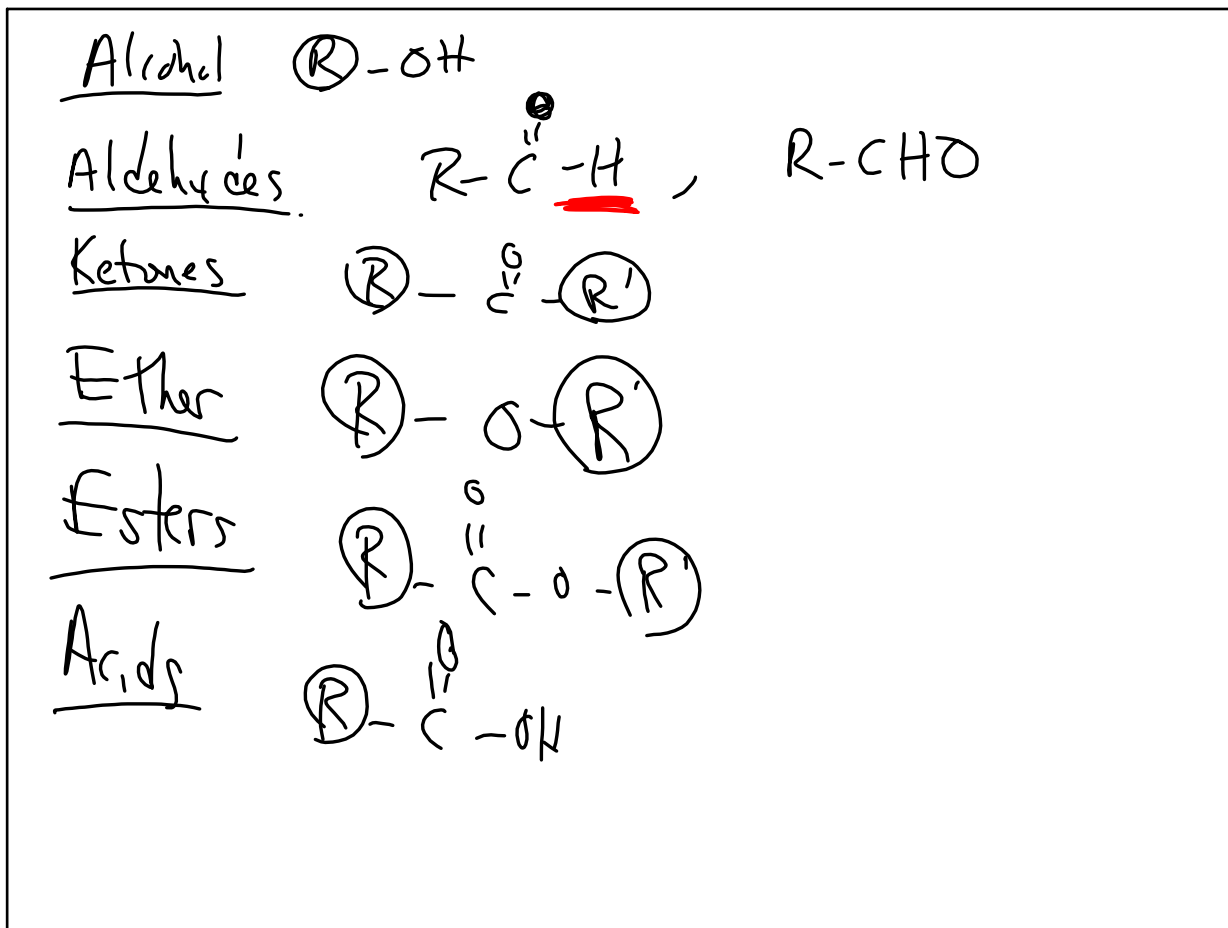 Alcohol R-OH
O
Aldehydes. R-C-H, R-CHO
O
Ketones R-C-R'
Ether R-O-R'
O
Esters R-C-O-R'
O
Acids R-C-OH